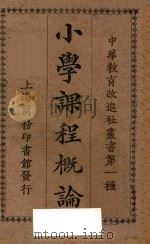 中華教育改進社叢書第一種
小學課程概論
上海商務印書館發行